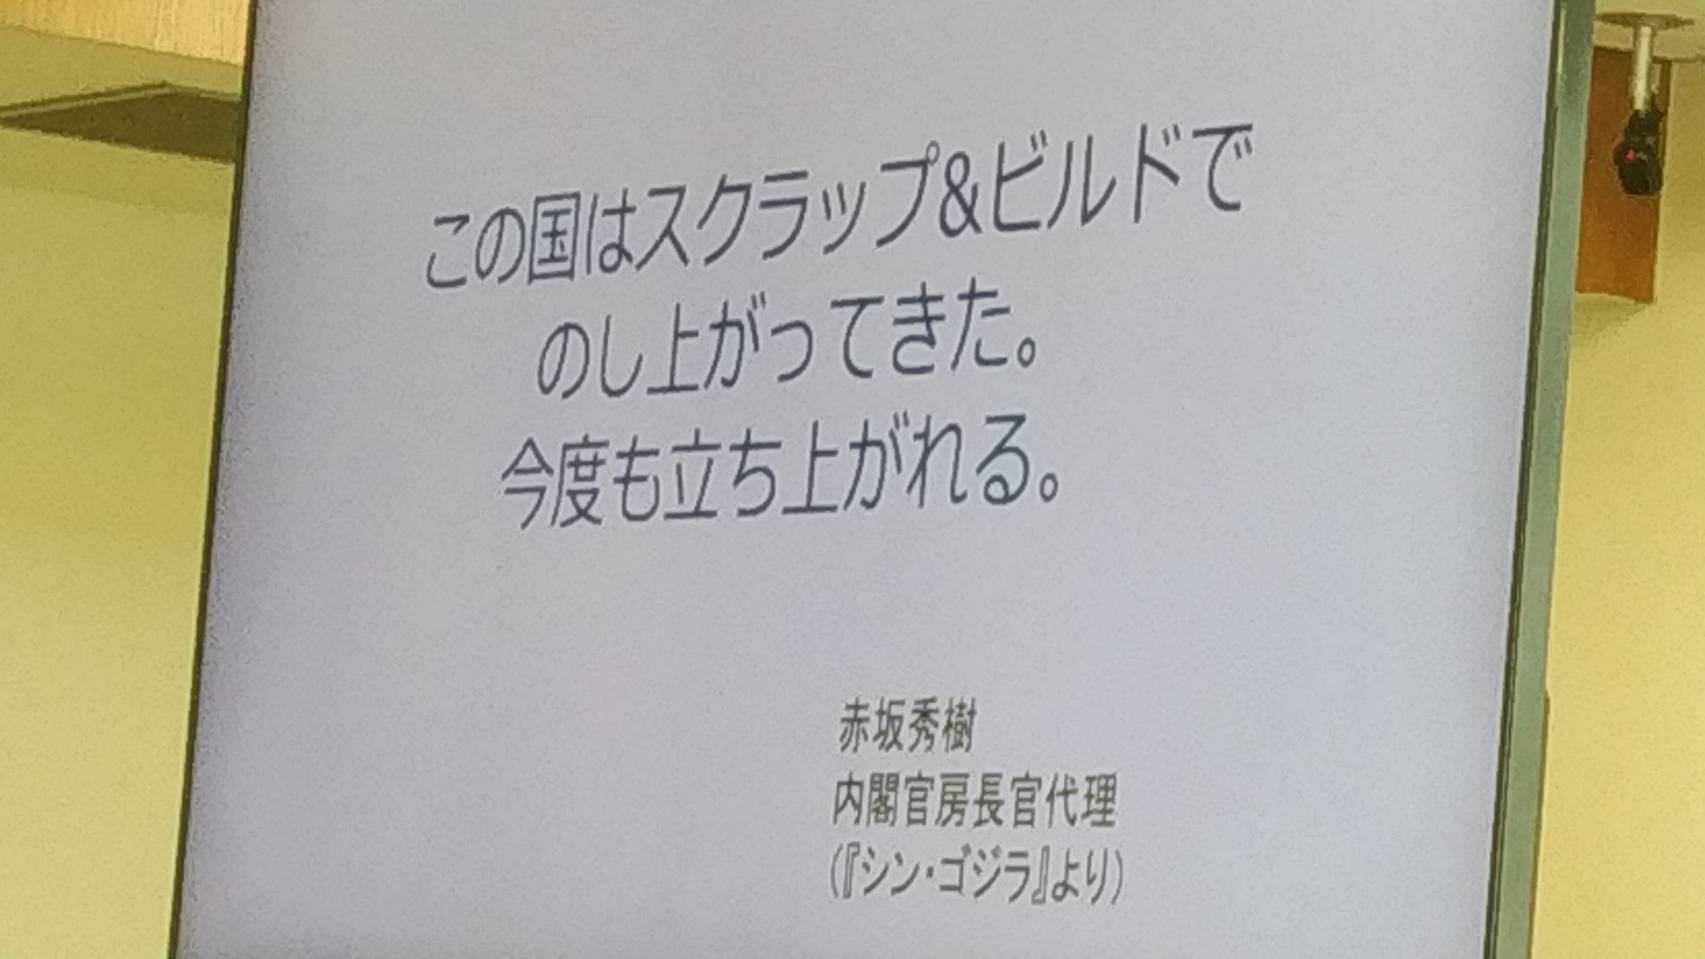 この国はスクラップ&ビルドで
のし上がってきた。
今度も立ち上がれる。
赤坂秀樹
内閣官房長官代理
(『シン・ゴジラ』より)